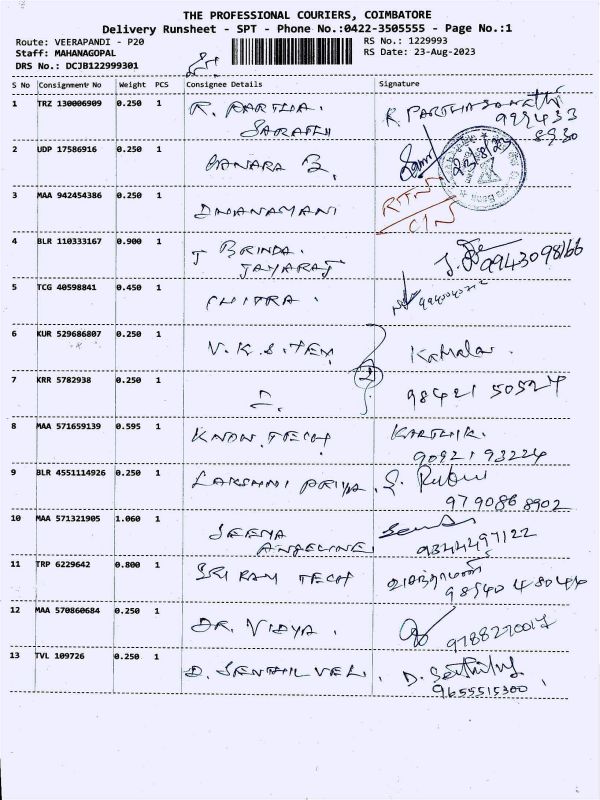 THE PROFESSIONAL COURIERS, COIMBATORE
Delivery Runsheet - SPT - Phone No.:0422-3505555 - Page No.:1
Route: VEERAPANDI - P20
RS No.: 1229993
Staff: MAHANAGOPAL
RS Date: 23-Aug-2023
DRS No.: DCJB122999301
S No Consignment No Weight PCS Consignee Details Signature
1 TRZ 130006909 0.250 1 R. PARTHA. R. PARTHASARATHI
SARATHI
2 UDP 17586916 0.250 1 CANARA B, 23/8/23
3 MAA 942454386 0.250 1 DHANAMANI RTN
CIN
4 BLR 110333167 0.900 1 J BRINDA. 9943098166
JAYARAJ
5 TCG 40598841 0.450 1 CHITRA.
6 KUR 529686807 0.250 1 V.K.S.TEX Kamala.
2
7 KRR 5782938 0.250 1 98421 50524
8 MAA 571659139 0.595 1 KNDN TECH KARTHIK.
90921 93224
9 BLR 4551114926 0.250 1 LAKSHMI PRIYA.
979086 8902
10 MAA 571321905 1.060 1 JEENA
ANJELINE 9344497122
11 TRP 6229642 0.800 1 SRI RAM TECH
12 MAA 570860684 0.250 1 DR. VIDYA. 9788270017
13 TVL 109726 0.250 1 D. SENTHIL VEL.
9655515300